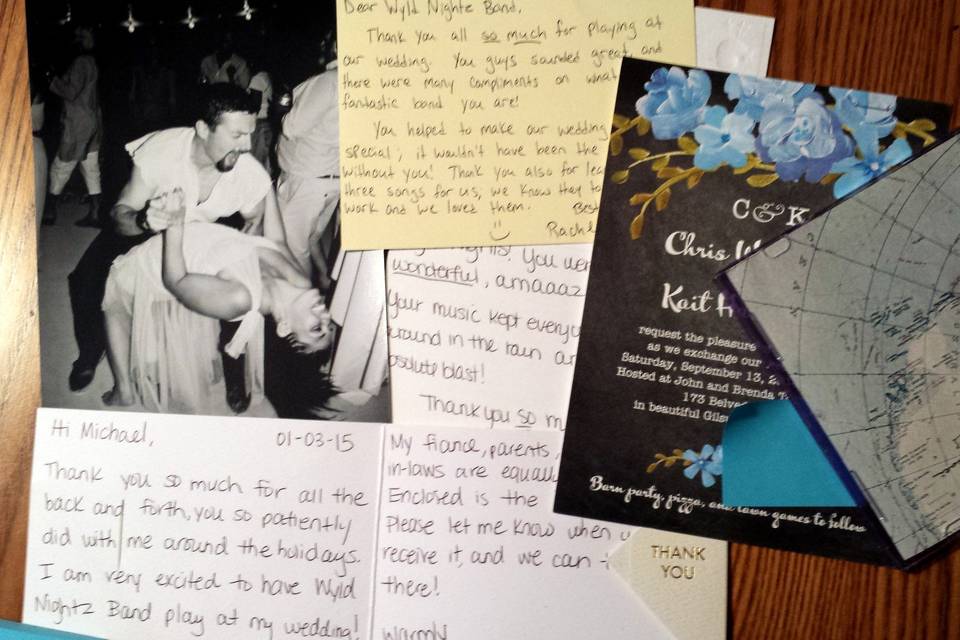 Dear Wyld Nightz Band,
Thank you all so much for playing at
our wedding. You guys sounded great, and
there were many compliments on what
fantastic band you are!
You helped to make our wedding
special; it wouldn't have been the
without you! Thank you also for
three songs for us, we know they
work and we loved them. Best
Rach
You wer
wonderful, amaaaz
Your music kept every
around in the rain
absolute blast!
Thank you so m
Hi Michael, 01-03-15
Thank you so much for all the
back and forth, you so patiently
did with me around the holidays.
I am very excited to have Wyld
Nightz Band play at my wedding!
My fiance, parents,
in-laws are equally
Enclosed is the
Please let me know when
receive it, and we can
there!
Warmly
THANK
YOU
C & K
Chris
Kait
request the pleasure
as we exchange our
Saturday, September 13, 2
Hosted at John and Brenda
173
in beautiful
Barn party, pizza, and lawn games to follow